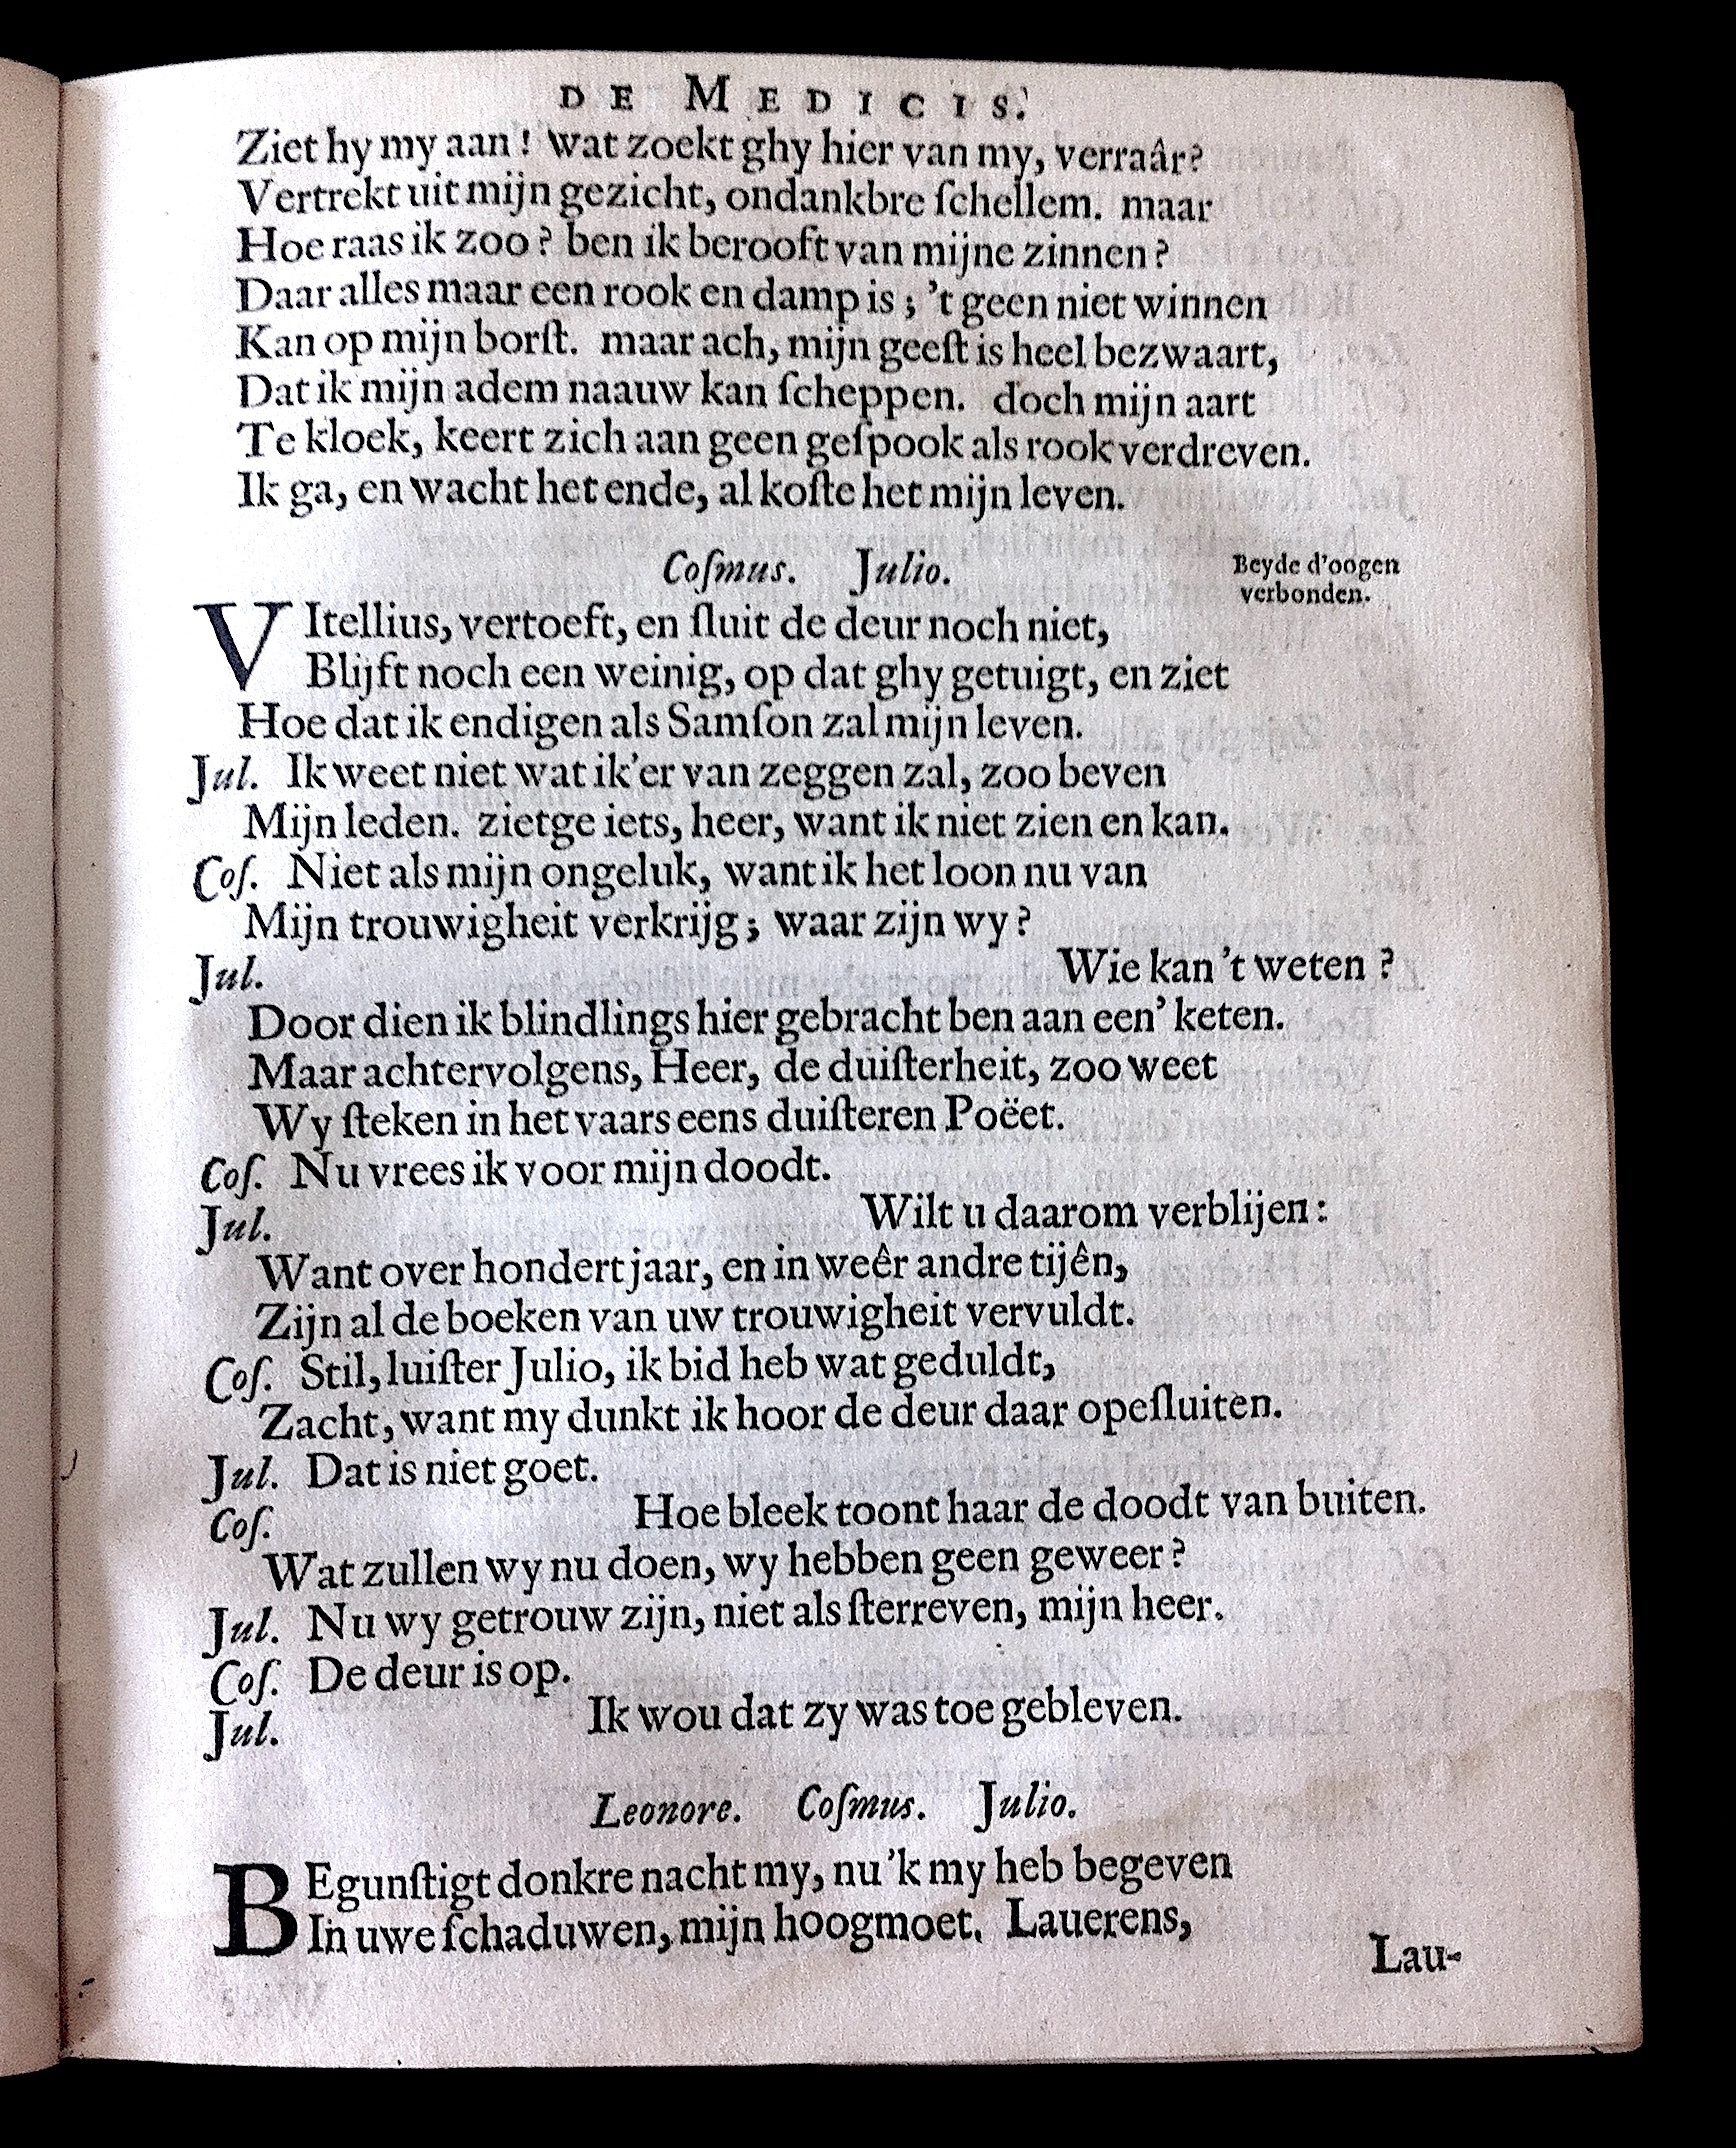 DE MEDICIS.
Ziet hy my aan! wat zoekt ghy hier van my, verraâr?
Vertrekt uit mijn gezicht, ondankbre ſchellem. maar
Hoe raas ik zoo? ben ik berooft van mijne zinnen?
Daar alles maar een rook en damp is; 't geen niet winnen
Kan op mijn borſt. maar ach, mijn geeſt is heel bezwaart,
Dat ik mijn adem naauw kan ſcheppen. doch mijn aart
Te kloek, keert zich aan geen geſpook als rook verdreven.
Ik ga, en wacht het ende, al koſte het mijn leven.
Coſmus. Julio.
Beyde d'oogen
verbonden.
VItellius, vertoeft, en ſluit de deur noch niet,
Blijft noch een weinig, op dat ghy getuigt, en ziet
Hoe dat ik endigen als Samſon zal mijn leven.
Jul. Ik weet niet wat ik'er van zeggen zal, zoo beven
Mijn leden. zietge iets, heer, want ik niet zien en kan.
Coſ. Niet als mijn ongeluk, want ik het loon nu van
Mijn trouwigheit verkrijg; waar zijn wy?
Jul. Wie kan 't weten?
Door dien ik blindlings hier gebracht ben aan een' keten.
Maar achtervolgens, Heer, de duiſterheit, zoo weet
Wy ſteken in het vaars eens duiſteren Poëet.
Coſ. Nu vrees ik voor mijn doodt.
Jul. Wilt u daarom verblijen:
Want over hondert jaar, en in weêr andre tijên,
Zijn al de boeken van uw trouwigheit vervuldt.
Coſ. Stil, luiſter Julio, ik bid heb wat geduldt,
Zacht, want my dunkt ik hoor de deur daar opeſluiten.
Jul. Dat is niet goet.
Coſ. Hoe bleek toont haar de doodt van buiten.
Wat zullen wy nu doen, wy hebben geen geweer?
Jul. Nu wy getrouw zijn, niet als ſterreven, mijn heer.
Coſ. De deur is op.
Jul. Ik wou dat zy was toe gebleven.
Leonore. Coſmus. Julio.
BEgunſtigt donkre nacht my, nu 'k my heb begeven
In uwe ſchaduwen, mijn hoogmoet. Lauerens,
Lau-